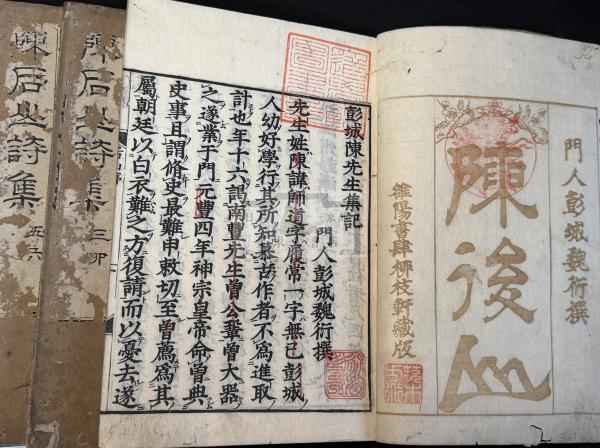 門人彭城魏衍撰
陳後山
雒陽書肆柳枝軒藏版
彭城陳先生集記
門人彭城魏衍撰
先生姓陳諱師道字履常一字無己彭城
人幼好學行其所知慕古作者不爲進取
計也年十六謁南豐先生曾公鞏曾大器
之遂業于門元豐四年神宗皇帝命曾典
史事且謂脩史最難申敕切至曾薦爲其
屬朝廷以白衣難之方復請而以憂去遂
陳后山詩集 三四
陳后山詩集 五六